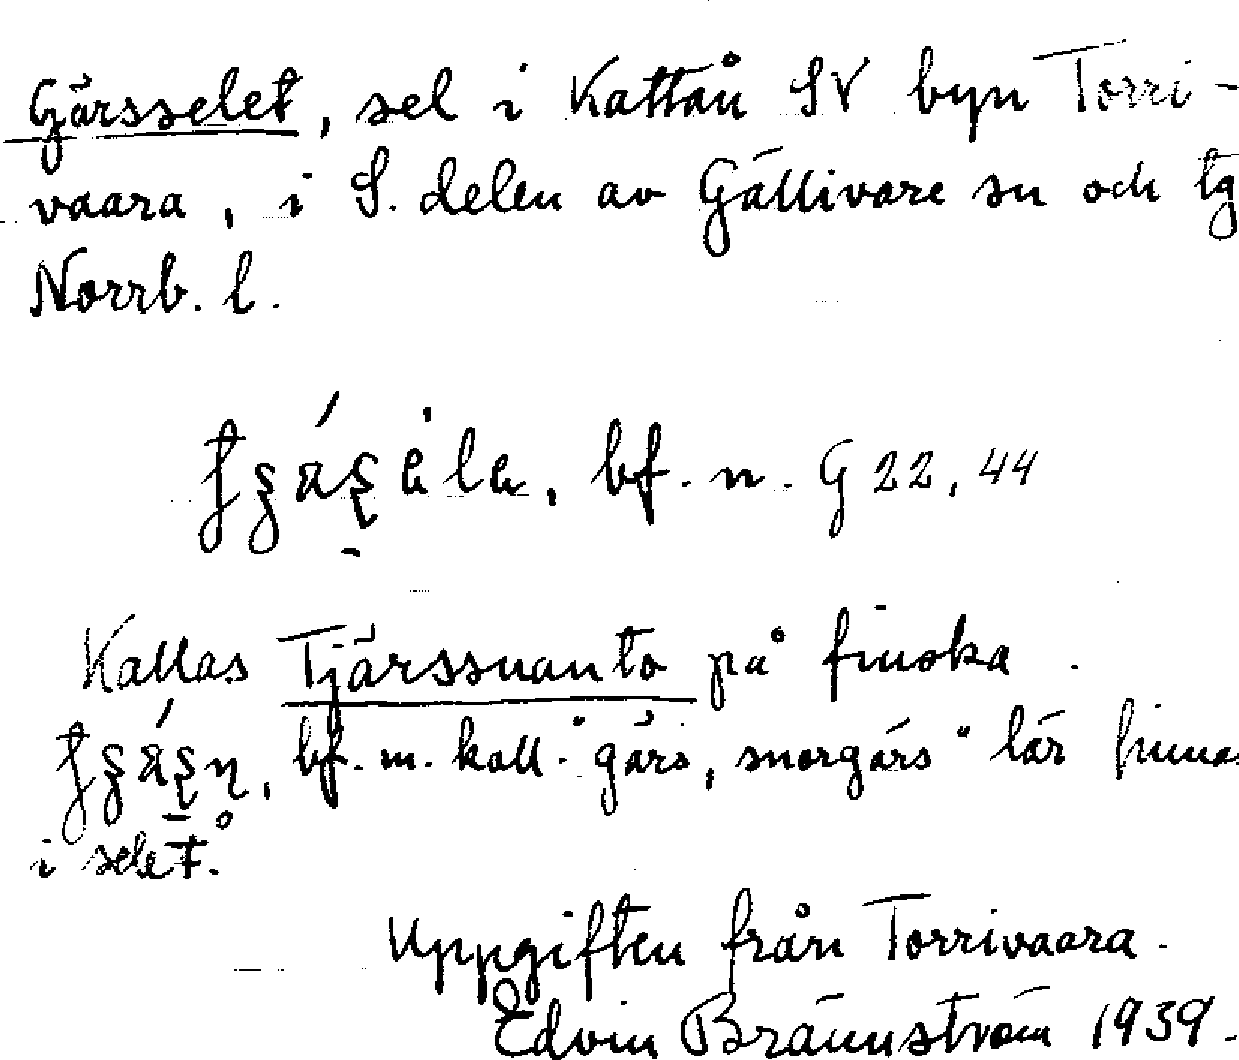 Gärsselet, sel i Kattån SV byn Torri-
vaara, i S. delen av Gällivare sn och tg
Norrb. l.
bf. n. G 22, 44
Kallas Tjärssuanto på finska.
bf. m. koll. "gärs, snorgärs" lär finnas
i selet.
Uppgiften från Torrivaara.
Edvin Brännström 1939.